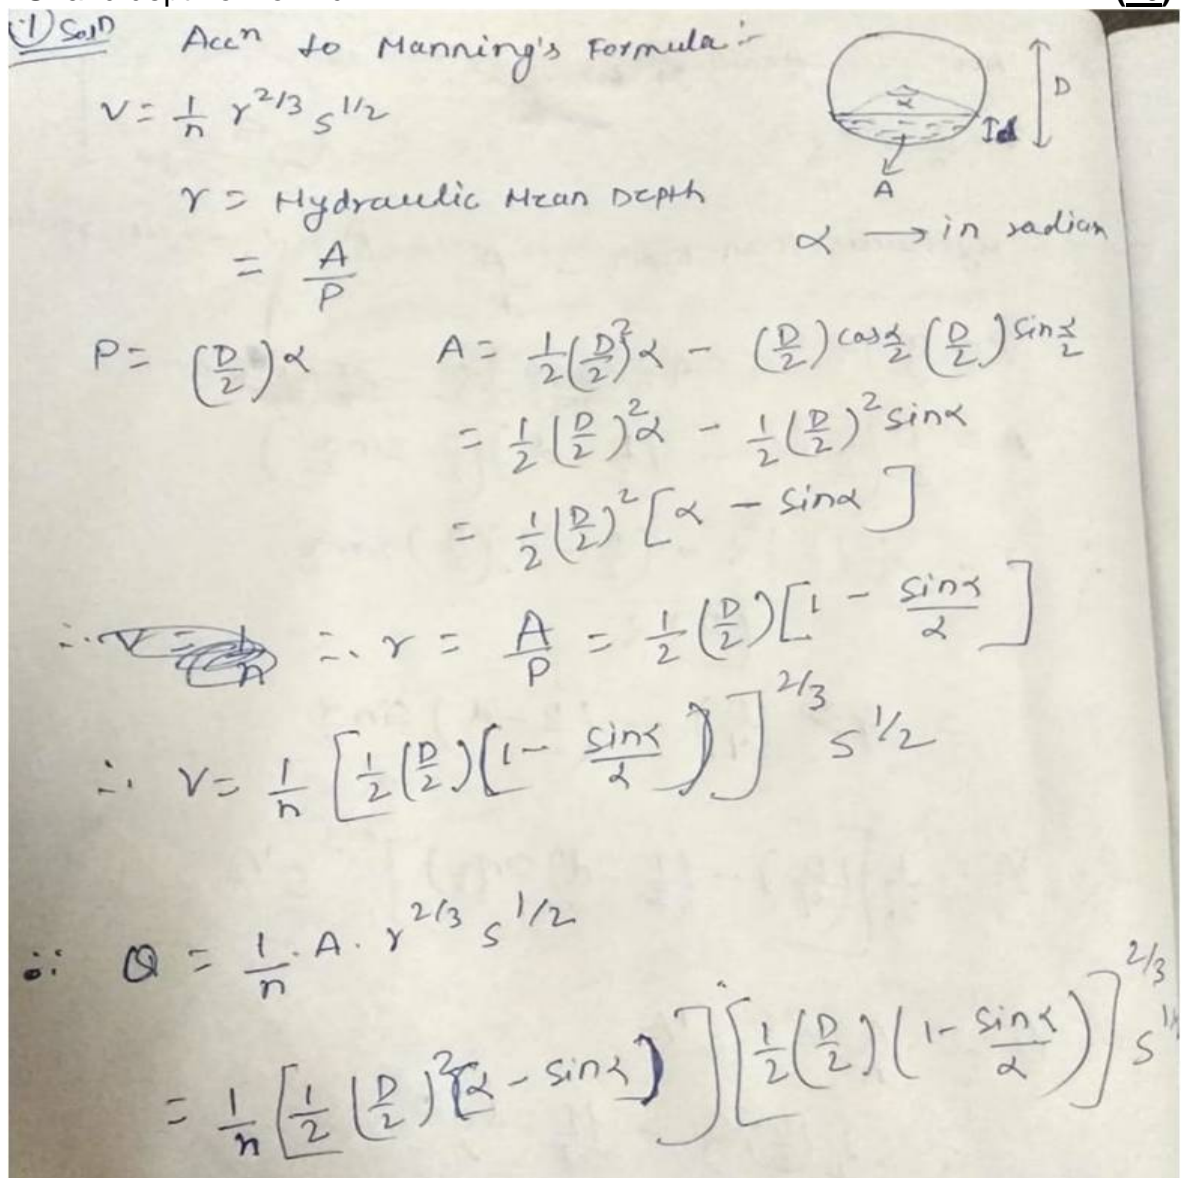 1) Solⁿ Accⁿ to Manning's Formula:-
V = 1/n r^2/3 s^1/2
D
d
A
r = Hydraulic Mean Depth
= A/P
α → in radian
P = (D/2)α A = 1/2(D/2)²α - (D/2)cos α/2 (D/2) sin α/2
= 1/2(D/2)²α - 1/2(D/2)² sinα
= 1/2(D/2)² [α - sinα]
∴ V = 1/n ∴ r = A/P = 1/2(D/2)[1 - sinα/α]
∴ V = 1/n [1/2(D/2)(1 - sinα/α)]^2/3 s^1/2
∴ Q = 1/n . A . r^2/3 s^1/2
= 1/n [1/2(D/2)²(α - sinα)] [1/2(D/2)(1 - sinα/α)]^2/3 s^1/